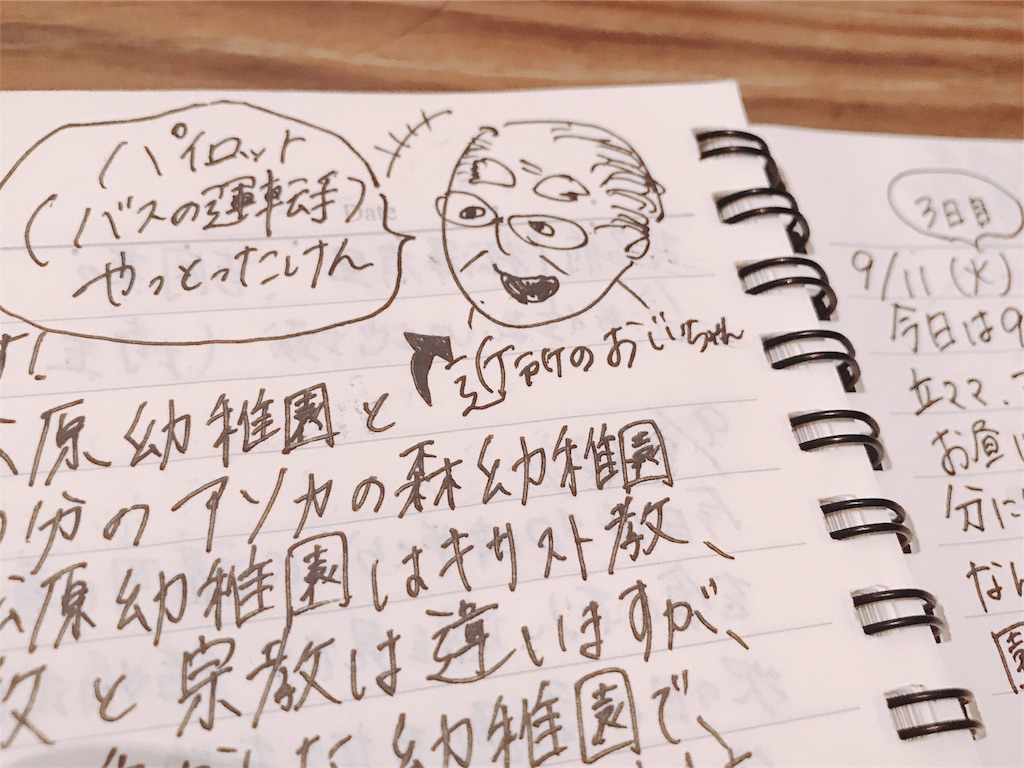 パイロット
(バスの運転手)
やっとったけん
近所のおじいちゃん
す!
原幼稚園と
分のアソカの森幼稚園
松原幼稚園はキリスト教、
教と宗教は違いますが、
な幼稚園で、
Date
3日目
9/11(火)
今日は9
立ママ、
お昼
分に
なん
園